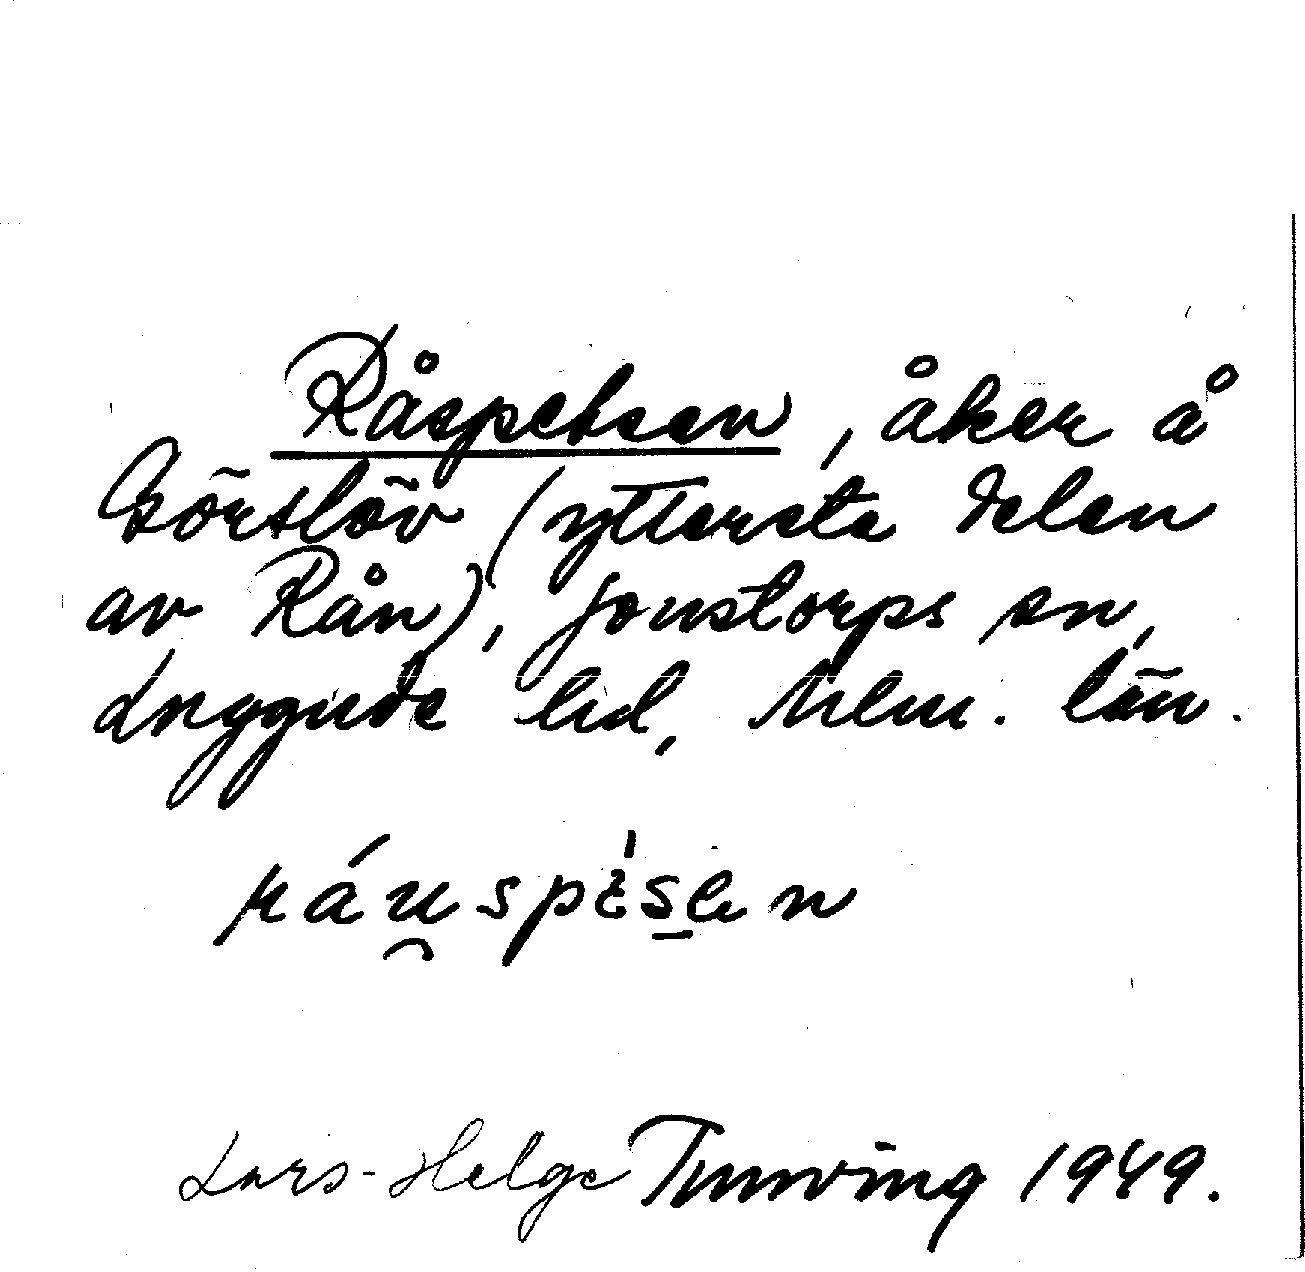 Råspetsen, åker å
Görslöv (yttersta delen
av Rån), Jonstorps sn,
Luggude hd, Mlm. län.
ráuspèsen
Lars-Helge Tunving 1949.